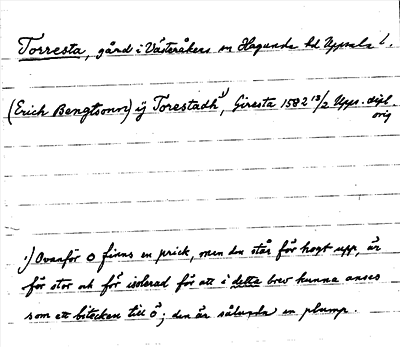 Torresta, gård i Västeråkers sn Hagunda hd Uppsala l.
(Erich Bengtsonn) ij Torestadh¹⁾, Giresta 1582 13/2 Upps. dipl.
orig
¹⁾ Ovanför o finns en prick, men den står för högt upp, är
för stor och för isolerad för att i detta brev kunna anses
som ett bitecken till ö; den är sålunda en plump.